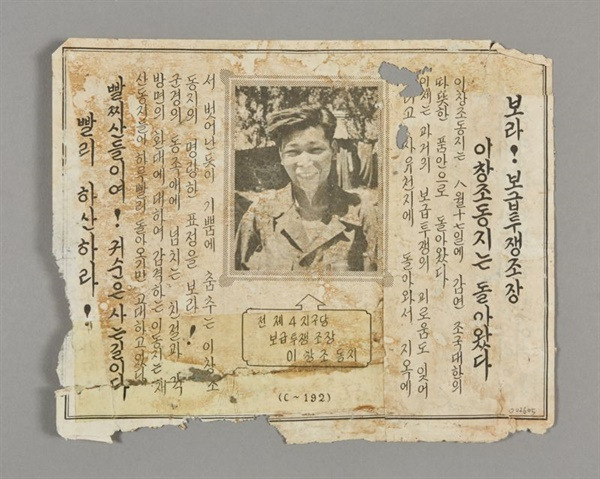 보라! 보급투쟁조장
이창조동지는 돌아왔다
이창조동지는 八월十七일에 감연 조국대한의
따뜻한 품안으로 돌아왔다
이제는 과거의 보급투쟁의 괴로움도 잊어
리고 자유천지에 돌아와서 지옥에
서 벗어난듯이 기쁨에 춤추는 이창조
동지의 명랑한 표정을 보라!
군경의 동족애에 넘치는 친절과 각
방면의 환대에 대하여 감격하는 이동지는 재
산동지들이 하루빨리 돌아오기만 고대하고있다
빨찌산들이여! 귀순은 사는길이다
빨리 하산하라!
전 제4지구당
보급투쟁조장
이창조동지
(C~192)